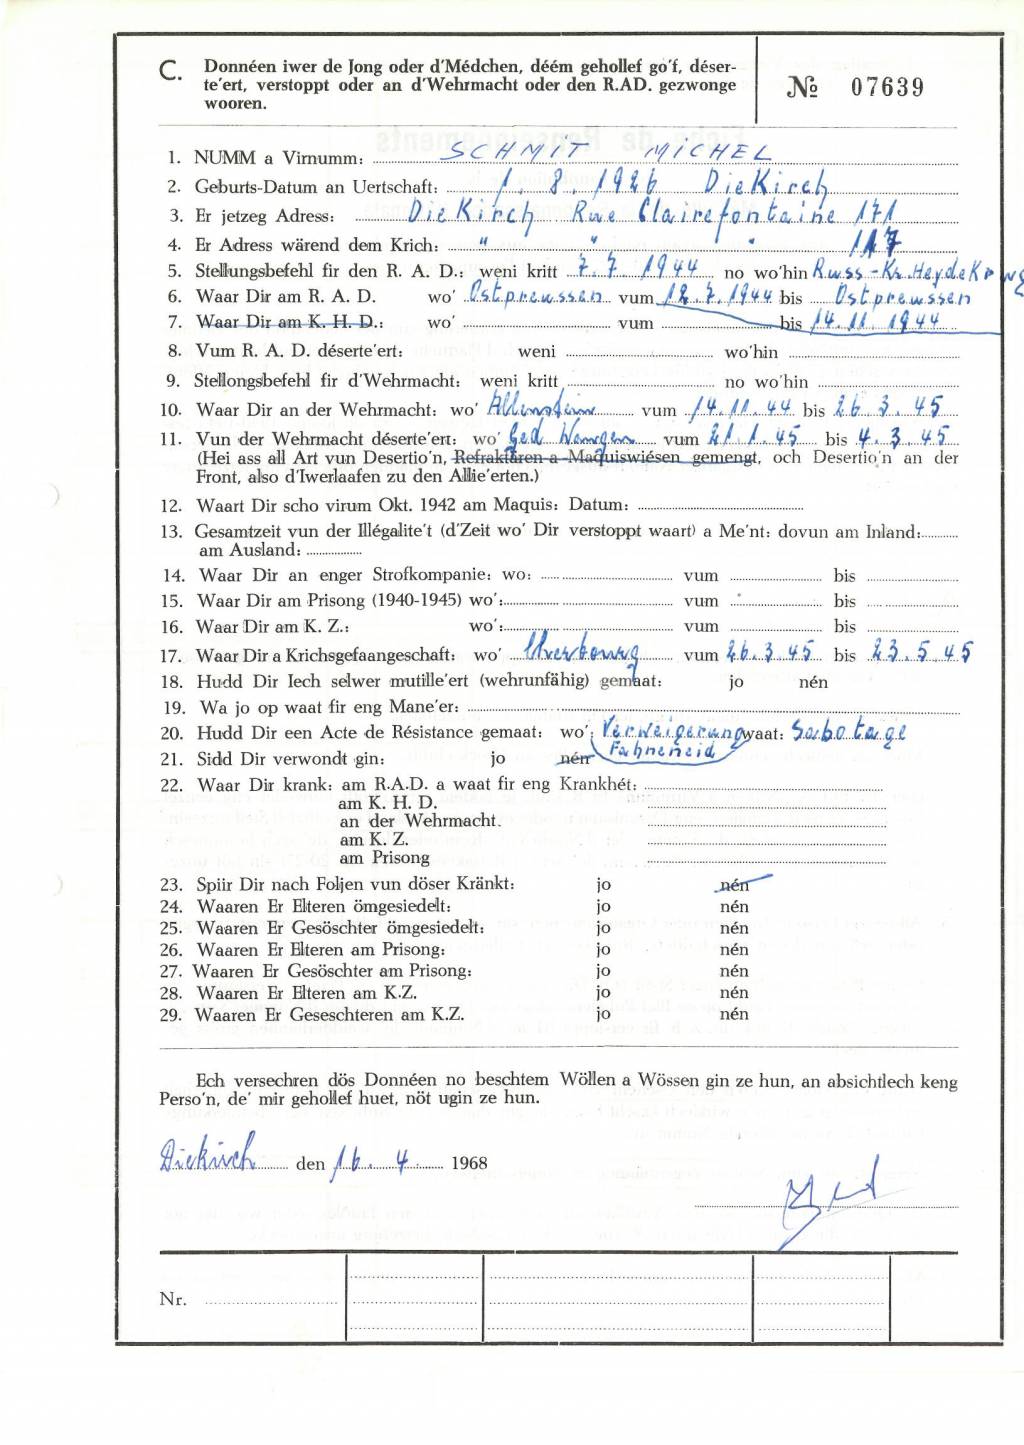 C. Donnéen iwer de Jong oder d'Médchen, déém gehollef go'f, déser-
te'ert, verstoppt oder an d'Wehrmacht oder den R.AD. gezwonge
wooren.
№ 07639
1. NUMM a Virnumm: SCHMIT MICHEL
2. Geburts-Datum an Uertschaft: 1. 8. 1926 Diekirch
3. Er jetzeg Adress: Diekirch Rue Clairefontaine 171
4. Er Adress wärend dem Krich: " " " 117
5. Stellungsbefehl fir den R. A. D.: weni kritt 7. 7. 1944 no wo'hin Russ-Kr. Heydekrug
6. Waar Dir am R. A. D. wo' Ostpreussen vum 12. 7. 1944 bis Ostpreussen
7. Waar Dir am K. H. D.: wo' vum bis 14. 11. 1944
8. Vum R. A. D. déserte'ert: weni wo'hin
9. Stellongsbefehl fir d'Wehrmacht: weni kritt no wo'hin
10. Waar Dir an der Wehrmacht: wo' Allenstein vum 14. 11. 44 bis 26. 3. 45
11. Vun der Wehrmacht déserte'ert: wo' vum 21. 1. 45 bis 4. 3. 45
(Hei ass all Art vun Desertio'n, Refraktären a Maquiswiésen gemengt, och Desertio'n an der
Front, also d'Iwerlaafen zu den Allie'erten.)
12. Waart Dir scho virum Okt. 1942 am Maquis: Datum:
13. Gesamtzeit vun der Illégalite't (d'Zeit wo' Dir verstoppt waart) a Me'nt: dovun am Inland:
am Ausland:
14. Waar Dir an enger Strofkompanie: wo: vum bis
15. Waar Dir am Prisong (1940-1945) wo': vum bis
16. Waar Dir am K. Z.: wo': vum bis
17. Waar Dir a Krichsgefaangeschaft: wo' vum 26. 3. 45 bis 23. 5. 45
18. Hudd Dir Iech selwer mutille'ert (wehrunfähig) gemaat: jo nén
19. Wa jo op waat fir eng Mane'er:
20. Hudd Dir een Acte de Résistance gemaat: wo': Verweigerung waat: Sabotage
Fahneneid
21. Sidd Dir verwondt gin: jo nén
22. Waar Dir krank: am R.A.D. a waat fir eng Krankhét:
am K. H. D.
an der Wehrmacht.
am K. Z.
am Prisong
23. Spiir Dir nach Foljen vun döser Kränkt: jo nén
24. Waaren Er Elteren ömgesiedelt: jo nén
25. Waaren Er Gesöschter ömgesiedelt: jo nén
26. Waaren Er Elteren am Prisong: jo nén
27. Waaren Er Gesöschter am Prisong: jo nén
28. Waaren Er Elteren am K.Z. jo nén
29. Waaren Er Geseschteren am K.Z. jo nén
Ech versechren dös Donnéen no beschtem Wöllen a Wössen gin ze hun, an absichtlech keng
Perso'n, de' mir gehollef huet, nöt ugin ze hun.
Diekirch den 16. 4. 1968
Nr.